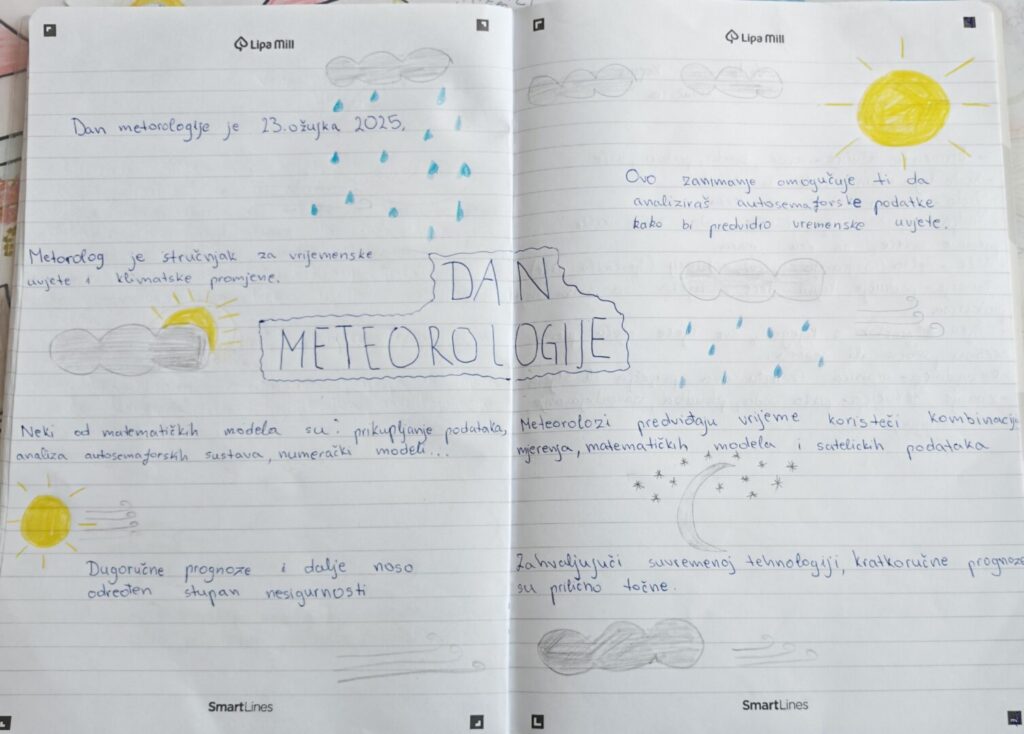 Lipa Mill
Dan metorologije je 23. ožujka 2025.
Metorolog je stručnjak za vrijemenske
uvjete i klimatske promjene.
DAN
METEOROLOGIJE
Neki od matematičkih modela su: prikupljanje podataka,
analiza autosemaforskih sustava, numerački modeli...
Dugoručne prognoze i dalje noso
određen stupan nesigurnosti
SmartLines
Lipa Mill
Ovo zanimanje omogučuje ti da
analiziraš autosemaforske podatke
kako bi predvidro vremenske uvjete.
Meteorolozi predviđaju vrijeme koristeči kombinacije
mjerenja, matematičkih modela i satelickih podataka
Zahvaljujuči suvremenoj tehnologiji, kratkoručne prognoze
su prilično točne.
SmartLines